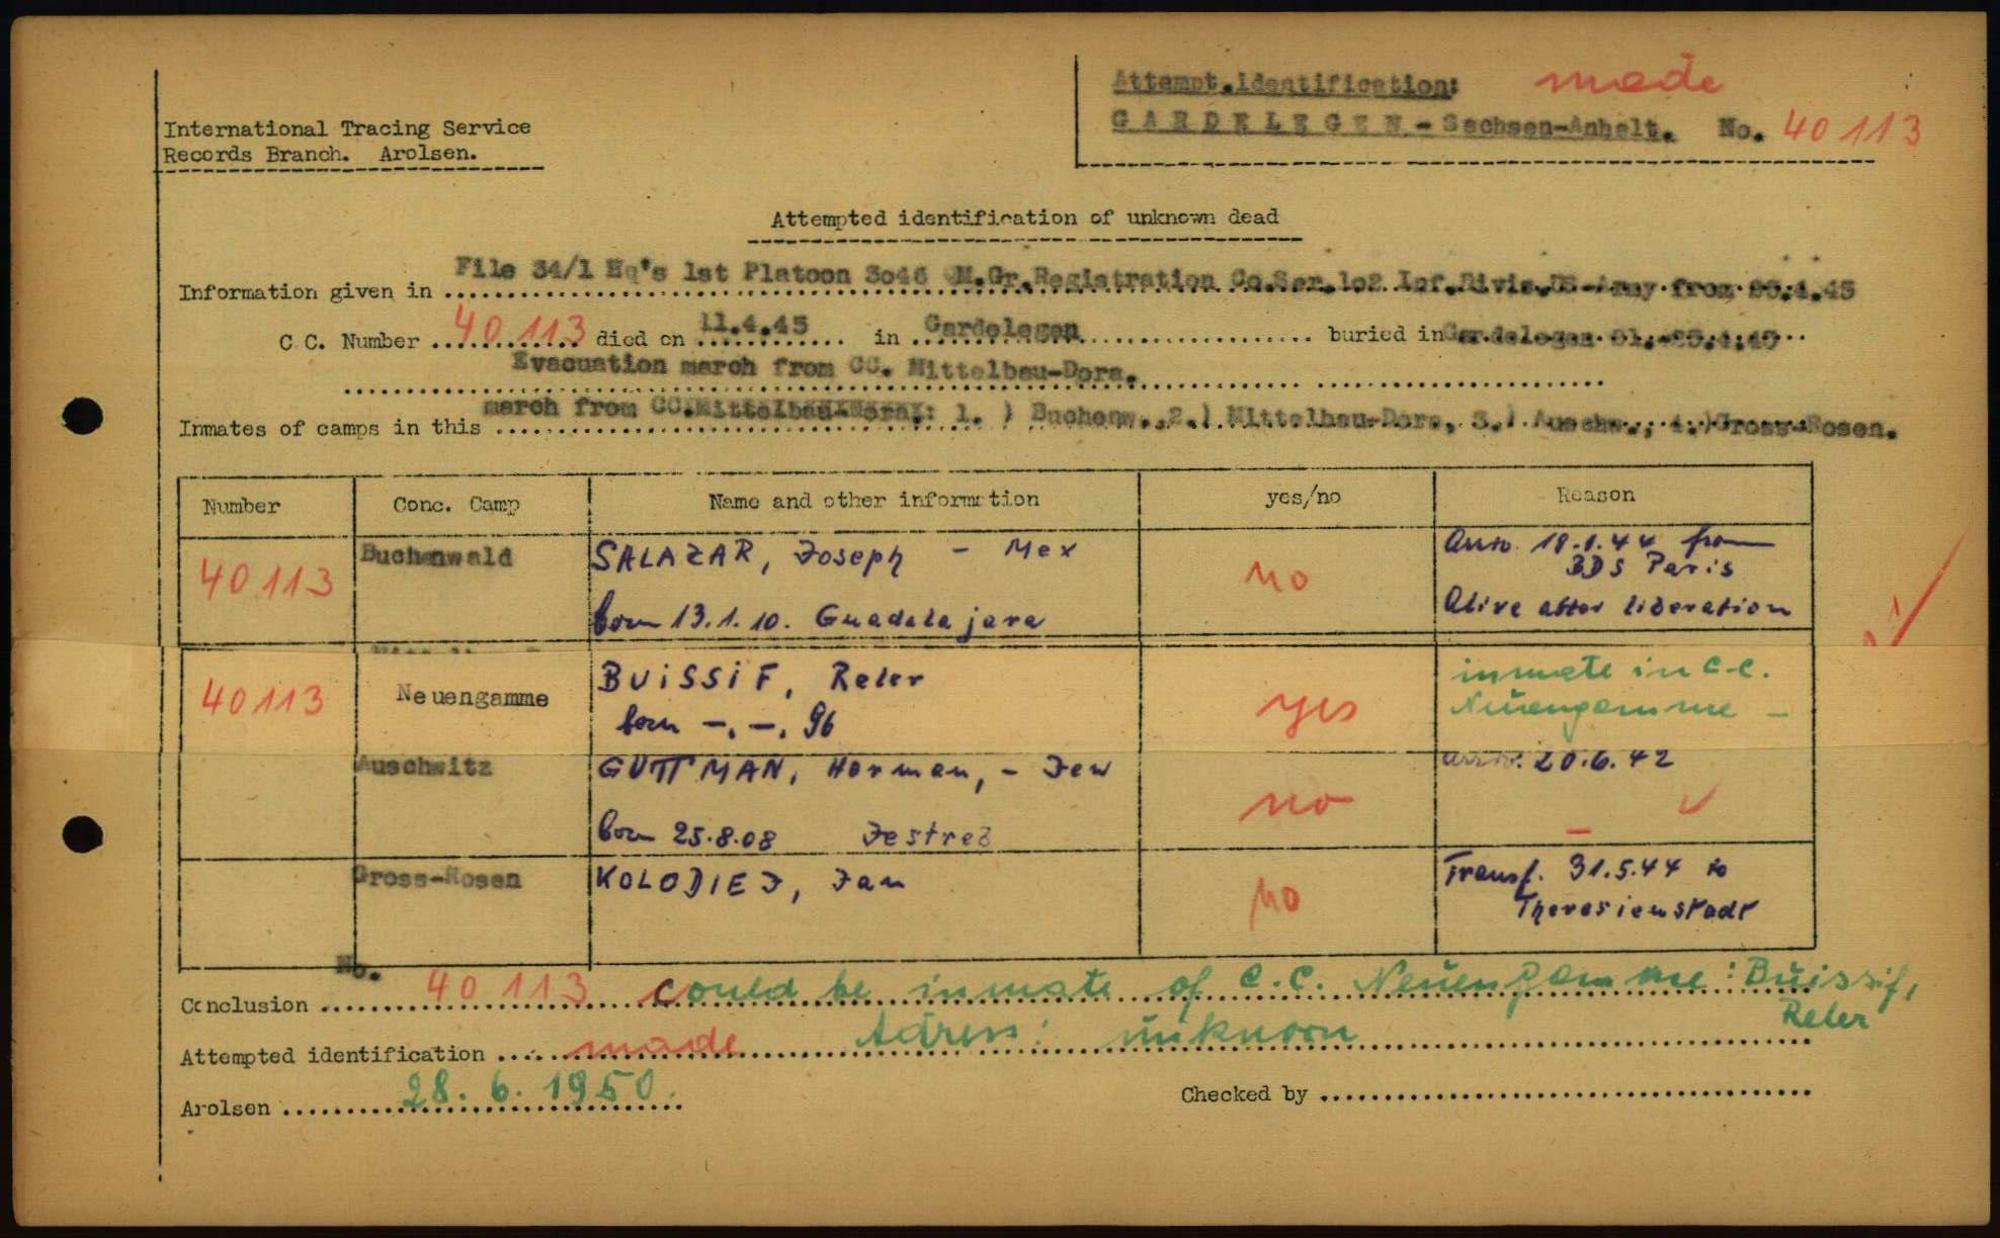 Attempt.Identification: made
GARDELEGEN - Sachsen-Anhalt. No. 40113
International Tracing Service
Records Branch. Arolsen.
Attempted identification of unknown dead
Information given in File 34/1 Hq's 1st Platoon 3o46 QM.Gr.Registration Co.Ser.1o2 Inf.Divis.US-Army from 25.4.45
C C. Number 40 113 died on 11.4.45 in Gardelegen buried in Gardelegen 21.-25.4.45
Evacuation march from CC. Mittelbau-Dora.
Inmates of camps in this march from CC.Mittelbau-Dora: 1. ) Buchenw.,2.) Mittelbau-Dora, 3.) Auschw., 4.)Gross-Rosen.
Number Conc. Camp Name and other information yes/no Reason
40113 Buchenwald SALAZAR, Joseph - Mex no Arriv. 18.1.44 from
BDS Paris
born 13.1.10. Guadalajara Alive after liberation
40113 Neuengamme BUiSSiF, Reler yes inmate in C.C.
born -. -. 96 Neuengamme -
Auschwitz GUTTMAN, Herman, - Jew no arriv. 20.6.42
born 25.8.08 Jestreb
Gross-Rosen KOLODIEJ, Jan no Transf. 31.5.44 to
Theresienstadt
Conclusion No. 40 113 could be inmate of C.C. Neuengamme: Buissif,
Reler
Attempted identification made Adress: unknown
Arolsen 28. 6. 1950.
Checked by